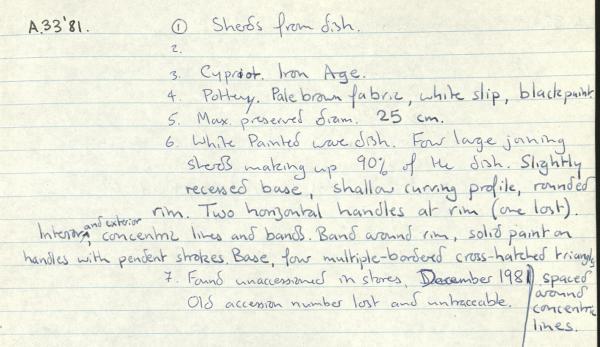 A.33'81. ① Sherds from dish.
2.
3. Cypriot. Iron Age.
4. Pottery. Pale brown fabric, white slip, black paint.
5. Max. preserved diam. 25 cm.
6. White Painted ware dish. Four large joining
sherds making up 90% of the dish. Slightly
recessed base, shallow curving profile, rounded
rim. Two horizontal handles at rim (one lost).
Interior and exterior, concentric lines and bands. Band around rim, solid paint on
handles with pendent strokes. Base, four multiple-bordered cross-hatched triangles
spaced
around
concentric
lines.
7. Found unaccessioned in stores, December 1981
Old accession number lost and untraceable.